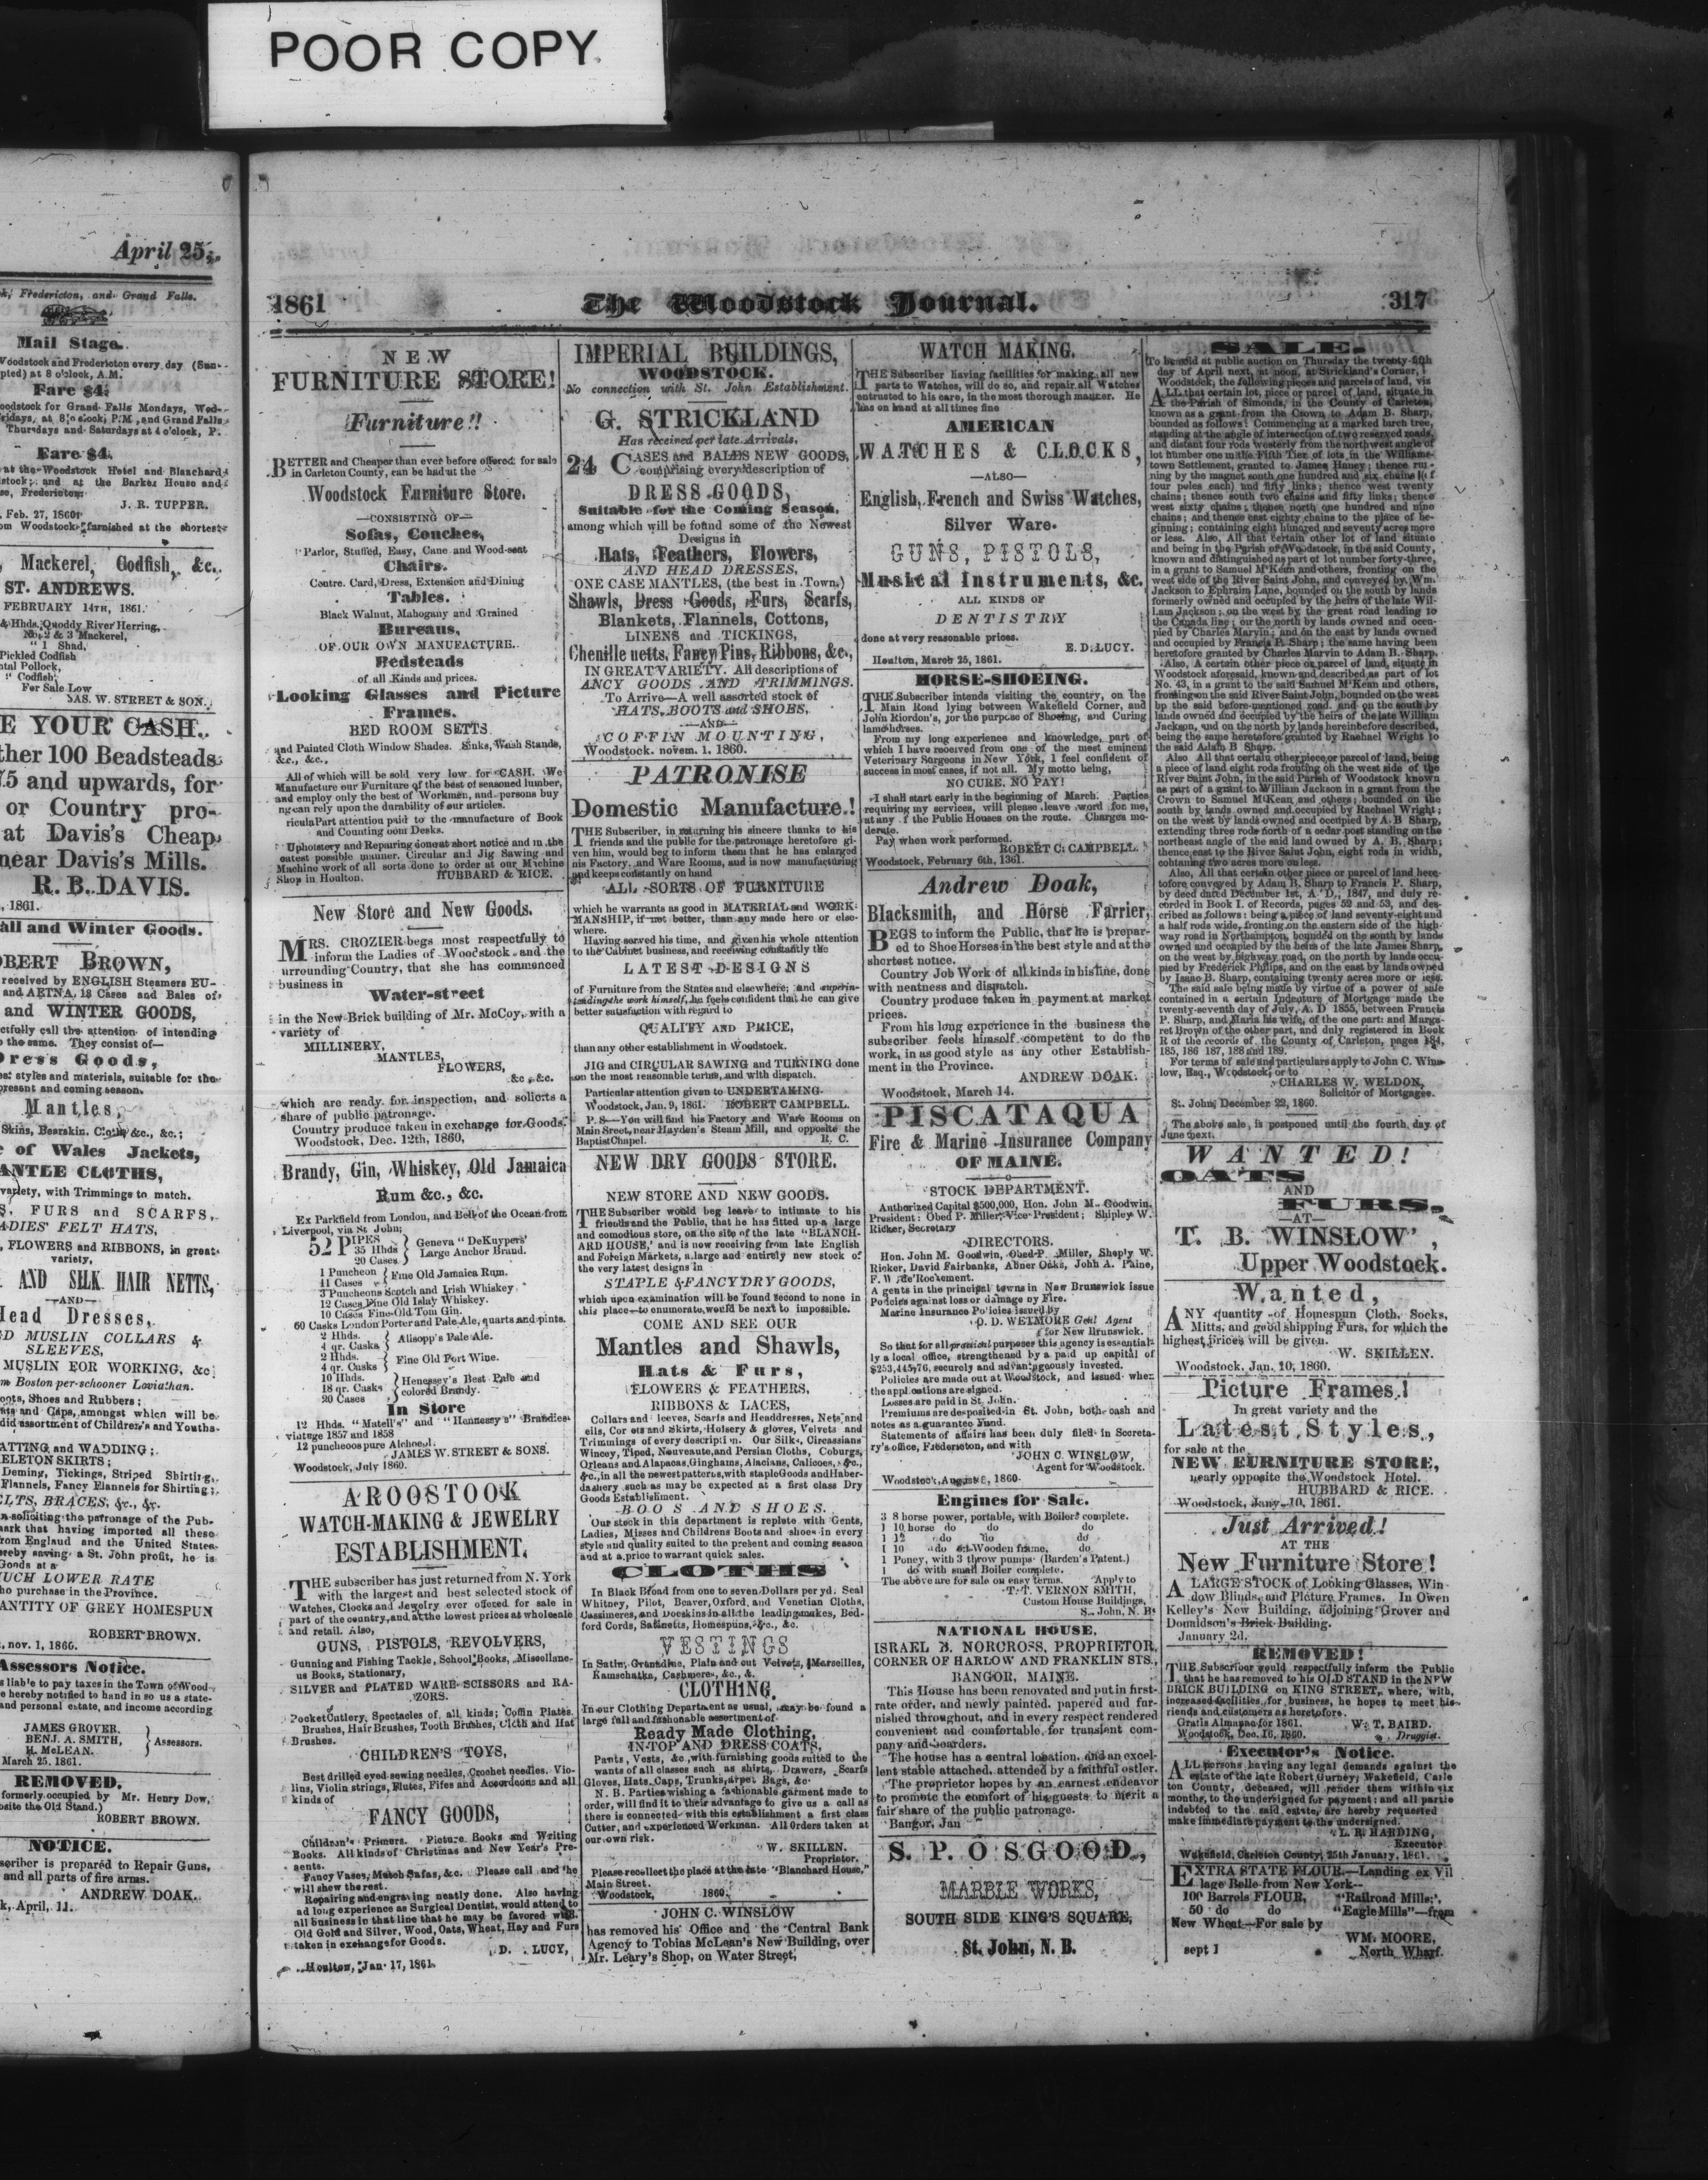 POOR COPY.
April 25.
Fredericton, and Grand Falls.
Mail Stage.
Woodstock and Fredericton every day (Sun-
pted) at 8 o'clock, A.M.
Fare $4.
oodstock for Grand Falls Mondays, Wed-
Thursdays and Saturdays at 4 o'clock, P.
Fare $4.
at the Woodstock Hotel and Blanchard
stock; and at the Barker House and
se, Fredericton
J. R. TUPPER.
Feb. 27, 1860
om Woodstock furnished at the shortest
Mackerel, Codfish, &c.
ST. ANDREWS.
FEBRUARY 14TH, 1861.
Hhds. Quoddy River Herring,
No. 2 & 3 Mackerel,
1 Shad,
Pickled Codfish
ntal Pollock,
" Codfish,
For Sale Low
JAS. W. STREET & SON.
E YOUR CASH.
ther 100 Beadsteads
75 and upwards, for
or Country pro-
at Davis's Cheap
near Davis's Mills.
R. B. DAVIS.
, 1861.
all and Winter Goods.
OBERT BROWN,
received by ENGLISH Steamers EU-
and AETNA, 18 Cases and Bales of
and WINTER GOODS,
ctfully call the attention of intending
o the same. They consist of—
Dress Goods,
est styles and materials, suitable for the
present and coming season.
Mantles,
Skins, Bearskin. Cloths &c., &c.;
e of Wales Jackets,
ANTLE CLOTHS,
variety, with Trimmings to match.
S. FURS and SCARFS,
ADIES' FELT HATS,
, FLOWERS and RIBBONS, in great
variety,
AND SILK HAIR NETTS,
—AND—
Head Dresses,
D MUSLIN COLLARS &
SLEEVES,
MUSLIN FOR WORKING, &c
m Boston per schooner Loviathan.
oots, Shoes and Rubbers;
ats and Caps, amongst which will be
did assortment of Children's and Youths
ATTING and WADDING;
ELETON SKIRTS;
Deming, Tickings, Striped Shirting,
Flannels, Fancy Flannels for Shirting;
ELTS, BRACES, &c., &c.
n soliciting the patronage of the Pub-
ark that having imported all these
rom England and the United States
reby saving a St. John profit, he is
Goods at a
MUCH LOWER RATE
ho purchase in the Province.
ANTITY OF GREY HOMESPUN
ROBERT BROWN.
, nov. 1, 1866.
Assessors Notice.
s liable to pay taxes in the Town of Wood
e hereby notified to hand in so us a state-
and personal estate, and income according
JAMES GROVER.
BENJ. A. SMITH, } Assessors.
H. McLEAN.
March 25, 1861.
REMOVED.
formerly occupied by Mr. Henry Dow,
posite the Old Stand.)
ROBERT BROWN.
NOTICE.
scriber is prepared to Repair Guns,
and all parts of fire arms.
ANDREW DOAK.
k, April, 11.
1861 The Woodstock Journal. 317
NEW
FURNITURE STORE!
Furniture!!
BETTER and Cheaper than ever before offered for sale
in Carleton County, can be had at the
Woodstock Furniture Store.
—CONSISTING OF—
Sofas, Couches,
Parlor, Stuffed, Easy, Cane and Wood-seat
Chairs.
Centre. Card, Dress, Extension and Dining
Tables.
Black Walnut, Mahogany and Grained
Bureaus,
OF OUR OWN MANUFACTURE.
Bedsteads
of all Kinds and prices.
Looking Glasses and Picture
Frames.
BED ROOM SETTS
and Painted Cloth Window Shades. Sinks, Wash Stands,
&c., &c.,
All of which will be sold very low for CASH. We
Manufacture our Furniture of the best of seasoned lumber,
and employ only the best of Workmen, and persons buy
ing can rely upon the durability of our articles.
riculaPart attention paid to the manufacture of Book
and Counting oom Desks.
Upholstery and Repairing done at short notice and in the
eatest possible manner. Circular and Jig Sawing and
Machine work of all sorts done to order at our Machine
Shop in Houlton. HUBBARD & RICE.
New Store and New Goods.
MRS. CROZIER begs most respectfully to
inform the Ladies of Woodstock and the
urrounding Country, that she has commenced
business in
Water-street
in the New Brick building of Mr. McCoy, with a
variety of
MILLINERY,
MANTLES,
FLOWERS,
&c., &c.
which are ready for inspection, and solicits a
share of public patronage.
Country produce taken in exchange for Goods.
Woodstock, Dec. 12th, 1860,
Brandy, Gin, Whiskey, Old Jamaica
Rum &c., &c.
Ex Parkfield from London, and Bell of the Ocean from
Liverpool, via St. John;
52 PIPES
35 Hhds } Geneva "DeKuypers'
20 Cases Large Anchor Brand.
1 Puncheon
11 Cases } Fine Old Jamaica Rum.
3 Puncheons Scotch and Irish Whiskey
12 Cases Fine Old Islay Whiskey.
10 Cases Fine Old Tom Gin.
60 Casks London Porter and Pale Ale, quarts and pints.
2 Hhds.
4 qr. Casks } Allsopp's Pale Ale.
2 Hhds.
4 qr. Casks } Fine Old Port Wine.
10 Hhds.
18 qr. Casks } Henessey's Best Pale and
20 Cases colored Brandy.
In Store
12 Hhds. "Matell's" and "Hennessy's" Brandies
vintage 1857 and 1858
12 puncheons pure Alchoel.
JAMES W. STREET & SONS.
Woodstock, July 1860.
AROOSTOOK
WATCH-MAKING & JEWELRY
ESTABLISHMENT.
THE subscriber has just returned from N. York
with the largest and best selected stock of
Watches, Clocks and Jewelry ever offered for sale in
part of the country, and at the lowest prices at wholesale
and retail. Also,
GUNS, PISTOLS, REVOLVERS,
Gunning and Fishing Tackle, School Books, Miscellane-
us Books, Stationary,
SILVER and PLATED WARE SCISSORS and RA-
ZORS.
Pocket Cutlery, Spectacles of all kinds; Coffin Plates.
Brushes, Hair Brushes, Tooth Brushes, Cloth and Hat
Brushes.
CHILDREN'S TOYS,
Best drilled eyed sewing needles, Crochet needles. Vio-
lins, Violin strings, Flutes, Fifes and Accordeons and all
kinds of
FANCY GOODS,
Children's Primers. Picture Books and Writing
Books. All kinds of Christmas and New Year's Pre-
sents.
Fancy Vases, Match Safas, &c. Please call and he
will shew the rest.
Repairing and engraving neatly done. Also having
ad long experience as Surgical Dentist, would attend to
all business in that line that he may be favored with.
Old Gold and Silver, Wood, Oats, Wheat, Hay and Furs
taken in exchange for Goods.
D. LUCY,
Houlton, Jan 17, 1861.
IMPERIAL BUILDINGS,
WOODSTOCK.
No connection with St. John Establishment.
G. STRICKLAND
Has received per late Arrivals,
24 CASES and BALES NEW GOODS,
comprising every description of
DRESS GOODS,
Suitable for the Coming Season,
among which will be found some of the Newest
Designs in
Hats, Feathers, Flowers,
AND HEAD DRESSES,
ONE CASE MANTLES, (the best in Town.)
Shawls, Dress Goods, Furs, Scarfs,
Blankets, Flannels, Cottons,
LINENS and TICKINGS,
Chenille netts, Fancy Pins, Ribbons, &c.,
IN GREAT VARIETY. All descriptions of
ANCY GOODS AND TRIMMINGS.
To Arrive—A well assorted stock of
HATS, BOOTS and SHOES,
—AND—
COFFIN MOUNTING,
Woodstock. novem. 1. 1860.
PATRONISE
Domestic Manufacture.!
THE Subscriber, in returning his sincere thanks to his
friends and the public for the patronage heretofore gi-
ven him, would beg to inform them that he has enlarged
his Factory, and Ware Rooms, and is now manufacturing
and keeps constantly on hand
ALL SORTS OF FURNITURE
which he warrants as good in MATERIAL and WORK-
MANSHIP, if not better, than any made here or else-
where.
Having served his time, and given his whole attention
to the Cabinet business, and receiving constantly the
LATEST DESIGNS
of Furniture from the States and elsewhere; and superin-
tending the work himself, he feels confident that he can give
better satisfaction with regard to
QUALITY AND PRICE,
than any other establishment in Woodstock.
JIG and CIRCULAR SAWING and TURNING done
on the most reasonable terms, and with dispatch.
Particular attention given to UNDERTAKING.
Woodstock, Jan. 9, 1861. ROBERT CAMPBELL.
P. S—You will find his Factory and Ware Rooms on
Main Street, near Hayden's Steam Mill, and opposite the
Baptist Chapel. R. C.
NEW DRY GOODS STORE.
NEW STORE AND NEW GOODS.
THE Subscriber would beg leave to intimate to his
friends and the Public, that he has fitted up a large
and comodious store, on the site of the late "BLANCH-
ARD HOUSE,' and is now receiving from late English
and Foreign Markets, a large and entirely new stock of
the very latest designs in
STAPLE & FANCY DRY GOODS,
which upon examination will be found second to none in
this place—to enumerate, would be next to impossible.
COME AND SEE OUR
Mantles and Shawls,
Hats & Furs,
FLOWERS & FEATHERS,
RIBBONS & LACES,
Collars and leeves, Scarfs and Headdresses, Nets and
eils, Cor ets and Skirts, Hoisery & gloves, Velvets and
Trimmings of every descripti n. Our Silks, Circassians
Wincey, Tiped, Nouveaute, and Persian Cloths, Coburgs,
Orleans and Alapacas, Ginghams, Alacians, Calicoes, &c.,
&c., in all the newest patterns, with staple Goods and Haber-
dashery such as may be expected at a first class Dry
Goods Establishment.
BOO S AND SHOES.
Our stock in this department is replete with Gents,
Ladies, Misses and Childrens Boots and shoes in every
style and quality suited to the present and coming season
and at a price to warrant quick sales.
CLOTHS
In Black Broad from one to seven Dollars per yd. Seal
Whitney, Pilot, Beaver, Oxford, and Venetian Cloths,
Cassimeres, and Doeskins in all the leading makes, Bed-
ford Cords, Satinetts, Homespuns, &c., &c.
VESTINGS
In Satin, Grenadine, Plain and cut Velvets, Marseilles,
Kamschatka, Cashmeres, &c., &.
CLOTHING.
In our Clothing Department as usual, may be found a
large fall and fashionable assortment of
Ready Made Clothing,
IN TOP AND DRESS COATS,
Pants, Vests, &c, with furnishing goods suited to the
wants of all classes such as shirts, Drawers, Scarfs
Gloves, Hats, Caps, Trunks, arpet Bags, &c.
N. B. Parties wishing a fashionable garment made to
order, will find it to their advantage to give us a call as
there is connected with this establishment a first class
Cutter, and experienced Workman. All Orders taken at
our own risk.
W. SKILLEN.
Proprietor.
Please recollect the place at the late "Blanchard House,"
Main Street.
Woodstock, 1860.
JOHN C. WINSLOW
has removed his Office and the Central Bank
Agency to Tobias McLean's New Building, over
Mr. Leary's Shop, on Water Street,
WATCH MAKING.
THE Subscriber having facilities for making all new
parts to Watches, will do so, and repair all Watches
entrusted to his care, in the most thorough manner. He
has on hand at all times fine
AMERICAN
WATCHES & CLOCKS,
—ALSO—
English, French and Swiss Watches,
Silver Ware.
GUNS, PISTOLS,
Musical Instruments, &c.
ALL KINDS OF
DENTISTRY
done at very reasonable prices.
E. D. LUCY.
Houlton, March 25, 1861.
HORSE-SHOEING.
THE Subscriber intends visiting the country, on the
Main Road lying between Wakefield Corner, and
John Riordon's, for the purpose of Shoeing, and Curing
lame horses.
From my long experience and knowledge, part of
which I have received from one of the most eminent
Veterinary Surgeons in New York, I feel confident of
success in most cases, if not all. My motto being,
NO CURE, NO PAY!
I shall start early in the beginning of March. Parties
requiring my services, will please leave word for me,
at any f the Public Houses on the route. Charges mo-
derate.
Pay when work performed.
ROBERT C. CAMPBELL.
Woodstock, February 6th, 1361.
Andrew Doak,
Blacksmith, and Horse Farrier,
BEGS to inform the Public, that he is prepar-
ed to Shoe Horses in the best style and at the
shortest notice.
Country Job Work of all kinds in his line, done
with neatness and dispatch.
Country produce taken in payment at market
prices.
From his long experience in the business the
subscriber feels himself competent to do the
work, in as good style as any other Establish-
ment in the Province.
ANDREW DOAK.
Woodstock, March 14.
PISCATAQUA
Fire & Marine Insurance Company
OF MAINE.
STOCK DEPARTMENT.
Authorized Capital $500,000, Hon. John M. Goodwin,
President: Obed P. Miller, Vice President; Shipley W.
Ricker, Secretary
DIRECTORS.
Hon. John M. Goodwin, Obed P. Miller, Sheply W.
Ricker, David Fairbanks, Abner Oaks, John A. Paine,
F. W de'Rochement.
A gents in the principal towns in New Brunswick issue
Policies against loss or damage by Fire.
Marine Insurance Policies issued by
O. D. WETMORE Genl Agent
for New Brunswick.
So that for all practical purposes this agency is essential-
ly a local office, strengthened by a paid up capital of
$253,445,76, securely and advantgeously invested.
Policies are made out at Woodstock, and issued when
the appl cations are signed.
Losses are paid in St. John.
Premiums are deposited in St. John, both cash and
notes as a guarantee Fund.
Statements of affairs has been duly filed in Secreta-
ry's office, Fredericton, and with
JOHN C. WINSLOW,
Agent for Woodstock.
Woodstock, August 8, 1860.
Engines for Sale.
3 8 horse power, portable, with Boilers complete.
1 10 horse do do do
1 12 do do do
1 10 do 6t Wooden frame, do
1 Poney, with 3 throw pumps (Barden's Patent.)
1 do with small Boiler complete.
The above are for sale on easy terms. Apply to
T. T. VERNON SMITH,
Custom House Buildings,
S.. John, N. B.
NATIONAL HOUSE,
ISRAEL B. NORCROSS, PROPRIETOR,
CORNER OF HARLOW AND FRANKLIN STS.,
BANGOR, MAINE.
This House has been renovated and put in first-
rate order, and newly painted, papered and fur-
nished throughout, and in every respect rendered
convenient and comfortable, for transient com-
pany and boarders.
The house has a central location, and an excel-
lent stable attached, attended by a faithful ostler.
The proprietor hopes by an earnest endeavor
to promote the comfort of his guests to merit a
fair share of the public patronage.
Bangor, Jan
S. P. OSGOOD,
MARBLE WORKS,
SOUTH SIDE KING'S SQUARE,
St. John, N. B.
SALE.
To be sold at public auction on Thursday the twenty-fifth
day of April next, at noon, at Strickland's Corner,
Woodstock, the following pieces and parcels of land, viz
ALL that certain lot, piece or parcel of land, situate in
the Parish of Simonds, in the County of Carleton,
known as a grant from the Crown to Adam B. Sharp,
bounded as follows: Commencing at a marked birch tree,
standing at the angle of intersection of two reserved roads,
and distant four rods westerly from the northwest angle of
lot number one in the Fifth Tier of lots, in the Williams-
town Settlement, granted to James Haney; thence run-
ning by the magnet south one hundred and six chains (of
four poles each) and fifty links; thence west twenty
chains; thence south two chains and fifty links; thence
west sixty chains; thence north one hundred and nine
chains; and thence east eighty chains to the place of be-
ginning; containing eight hundred and seventy acres more
or less. Also, All that certain other lot of land situate
and being in the Parish of Woodstock, in the said County,
known and distinguished as part of lot number forty-three,
in a grant to Samuel McKean and others, fronting on the
west side of the River Saint John, and conveyed by Wm.
Jackson to Ephraim Lane, bounded on the south by lands
formerly owned and occupied by the heirs of the late Wil-
liam Jackson; on the west by the great road leading to
the Canada line; on the north by lands owned and occu-
pied by Charles Marvin; and on the east by lands owned
and occupied by Francis P. Sharp; the same having been
heretofore granted by Charles Marvin to Adam B. Sharp.
Also, A certain other piece or parcel of land, situate in
Woodstock aforesaid, known and described as part of lot
No. 43, in a grant to the said Samuel McKean and others,
fronting on the said River Saint John, bounded on the west
bp the said before-mentioned road, and on the south by
lands owned and occupied by the heirs of the late William
Jackson, and on the north by lands hereinbefore described,
being the same heretofore granted by Rachael Wright to
the said Adam B Sharp.
Also All that certain other piece or parcel of land, being
a piece of land eight rods fronting on the west side of the
River Saint John, in the said Parish of Woodstock known
as part of a grant to William Jackson in a grant from the
Crown to Samuel McKean and others; bounded on the
south by lands owned and occupied by Rachael Wright;
on the west by lands owned and occupied by A. B Sharp,
extending three rods north of a cedar post standing on the
northeast angle of the said land owned by A. B. Sharp;
thence east to the River Saint John, eight rods in width,
contaning two acres more or less.
Also, All that certain other piece or parcel of land here-
tofore conveyed by Adam B. Sharp to Francis P. Sharp,
by deed dated December 1st, A. D., 1847, and duly re-
corded in Book I. of Records, pages 52 and 53, and des-
cribed as follows: being a piece of land seventy-eight and
a half rods wide, fronting on the eastern side of the high-
way road in Northampton, bounded on the south by lands
owned and occupied by the heirs of the late James Sharp,
on the west by highway road, on the north by lands occu-
pied by Frederick Philips, and on the east by lands owned
by Isaac B. Sharp, containing twenty acres more or less.
The said sale being made by virtue of a power of sale
contained in a certain Indenture of Mortgage made the
twenty-seventh day of July, A. D 1855, between Francis
P. Sharp, and Maria his wife, of the one part: and Marga-
ret Brown of the other part, and duly registered in Book
R of the records of the County of Carleton, pages 184,
185, 186 187, 188 and 189.
For terms of sale and particulars apply to John C. Wins-
low, Esq., Woodstock, or to
CHARLES W. WELDON,
Solicitor of Mortgagee.
St. John, December 22, 1860.
The above sale, is postponed until the fourth day of
June next.
WANTED!
OATS
AND
FURS,
—AT—
T. B. WINSLOW',
Upper Woodstock.
Wanted,
ANY quantity of Homespun Cloth, Socks,
Mitts, and good shipping Furs, for which the
highest prices will be given.
W. SKILLEN.
Woodstock, Jan. 10, 1860.
Picture Frames.!
In great variety and the
Latest Styles,
for sale at the
NEW FURNITURE STORE,
nearly opposite the Woodstock Hotel.
HUBBARD & RICE.
Woodstock, Jany. 10, 1861.
Just Arrived!
AT THE
New Furniture Store!
A LARGE STOCK of Looking Glasses, Win
dow Blinds, and Picture Frames. In Owen
Kelley's New Building, adjoining Grover and
Donaldson's Brick Building.
January 2d.
REMOVED!
THE Subscriber would respectfully inform the Public
that he has removed to his OLD STAND in the NEW
BRICK BUILDING on KING STREET, where, with,
increased facilities for business, he hopes to meet his
riends and customers as heretofore.
Gratis Almanac for 1861. W. T. BAIRD.
Woodstock, Dec. 16, 1860. Druggist.
Executor's Notice.
ALL persons having any legal demands against the
estate of the late Robert Gurney, Wakefield, Carle
ton County, deceased, will render them within six
months, to the undersigned for payment: and all partie
indebted to the said estate, are hereby requested
make immediate payment to the undersigned.
L. R. HARDING,
Executor
Wakefield, Carleton County, 25th January, 1861.
EXTRA STATE FLOUR.—Landing ex Vil
lage Belle from New York—
100 Barrels FLOUR, "Railroad Mills;',
50 do do "Eagle Mills"—from
New Wheat—For sale by
WM. MOORE,
sept 1 North Wharf.